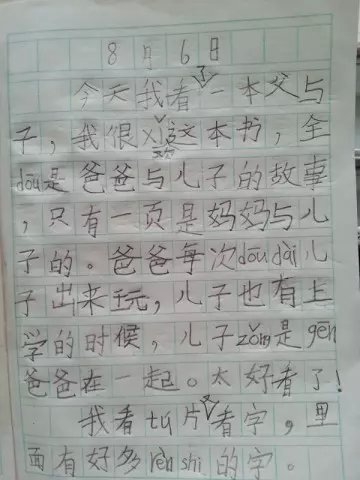 8月6日
今天我看了一本父与
子，我很xǐ欢这本书，全
dōu是爸爸与儿子的故事
，只有一页是妈妈与儿
子的。爸爸每次dōu dài儿
子出来玩，儿子也有上
学的时候，儿子zǒng是gēn
爸爸在一起。太好看了！
我看tú片看字，里
面有好多rèn shi的字。